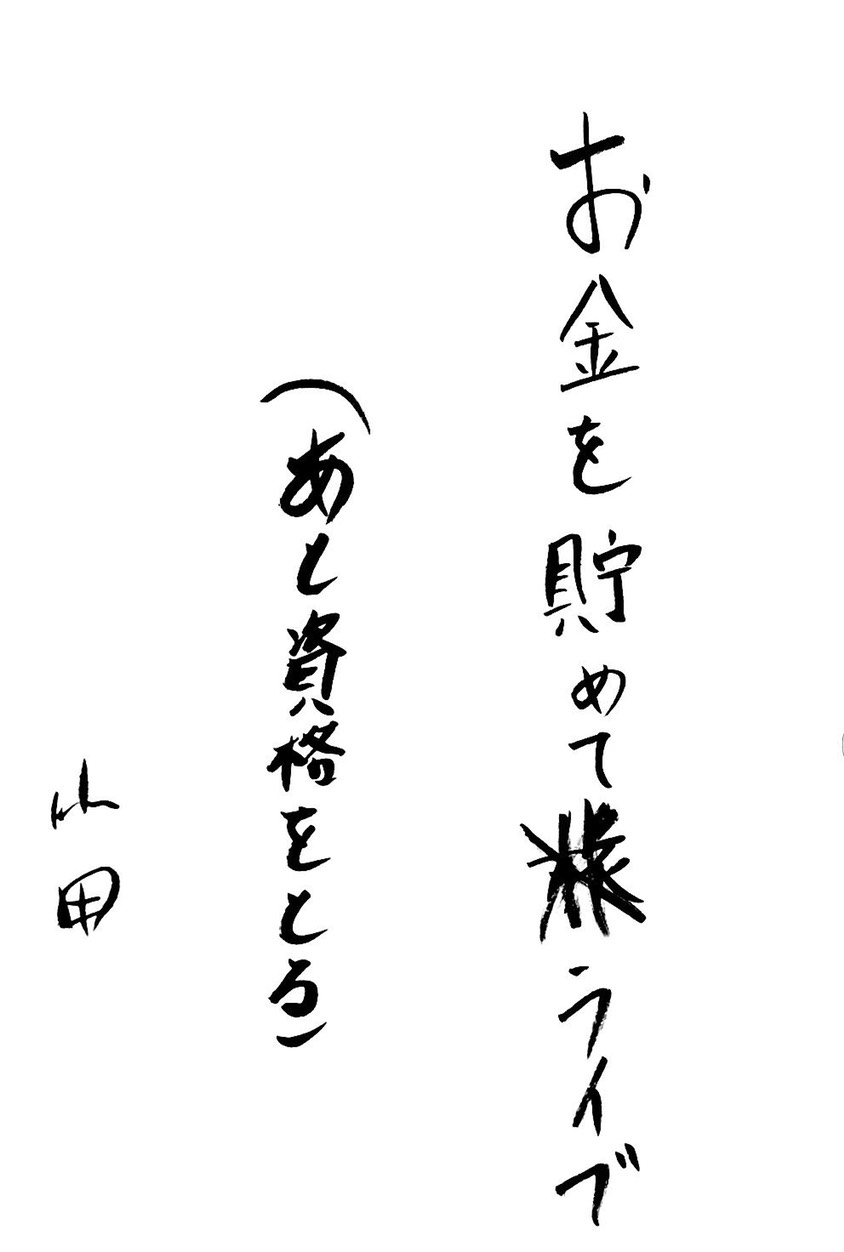 お金を貯めてライブ
(あと資格をとる)
山田